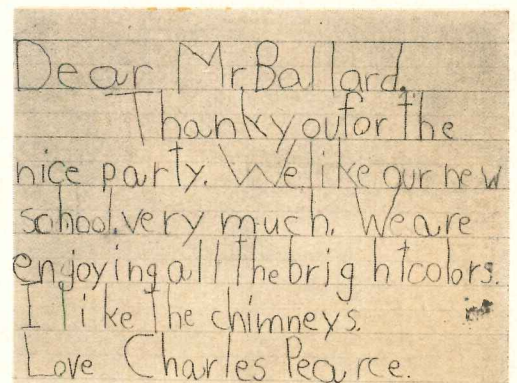 Dear Mr. Ballard,
Thank you for the
nice party. We like our new
school. very much. We are
enjoying all the bright colors.
I like the chimneys.
Love Charles Pearce.